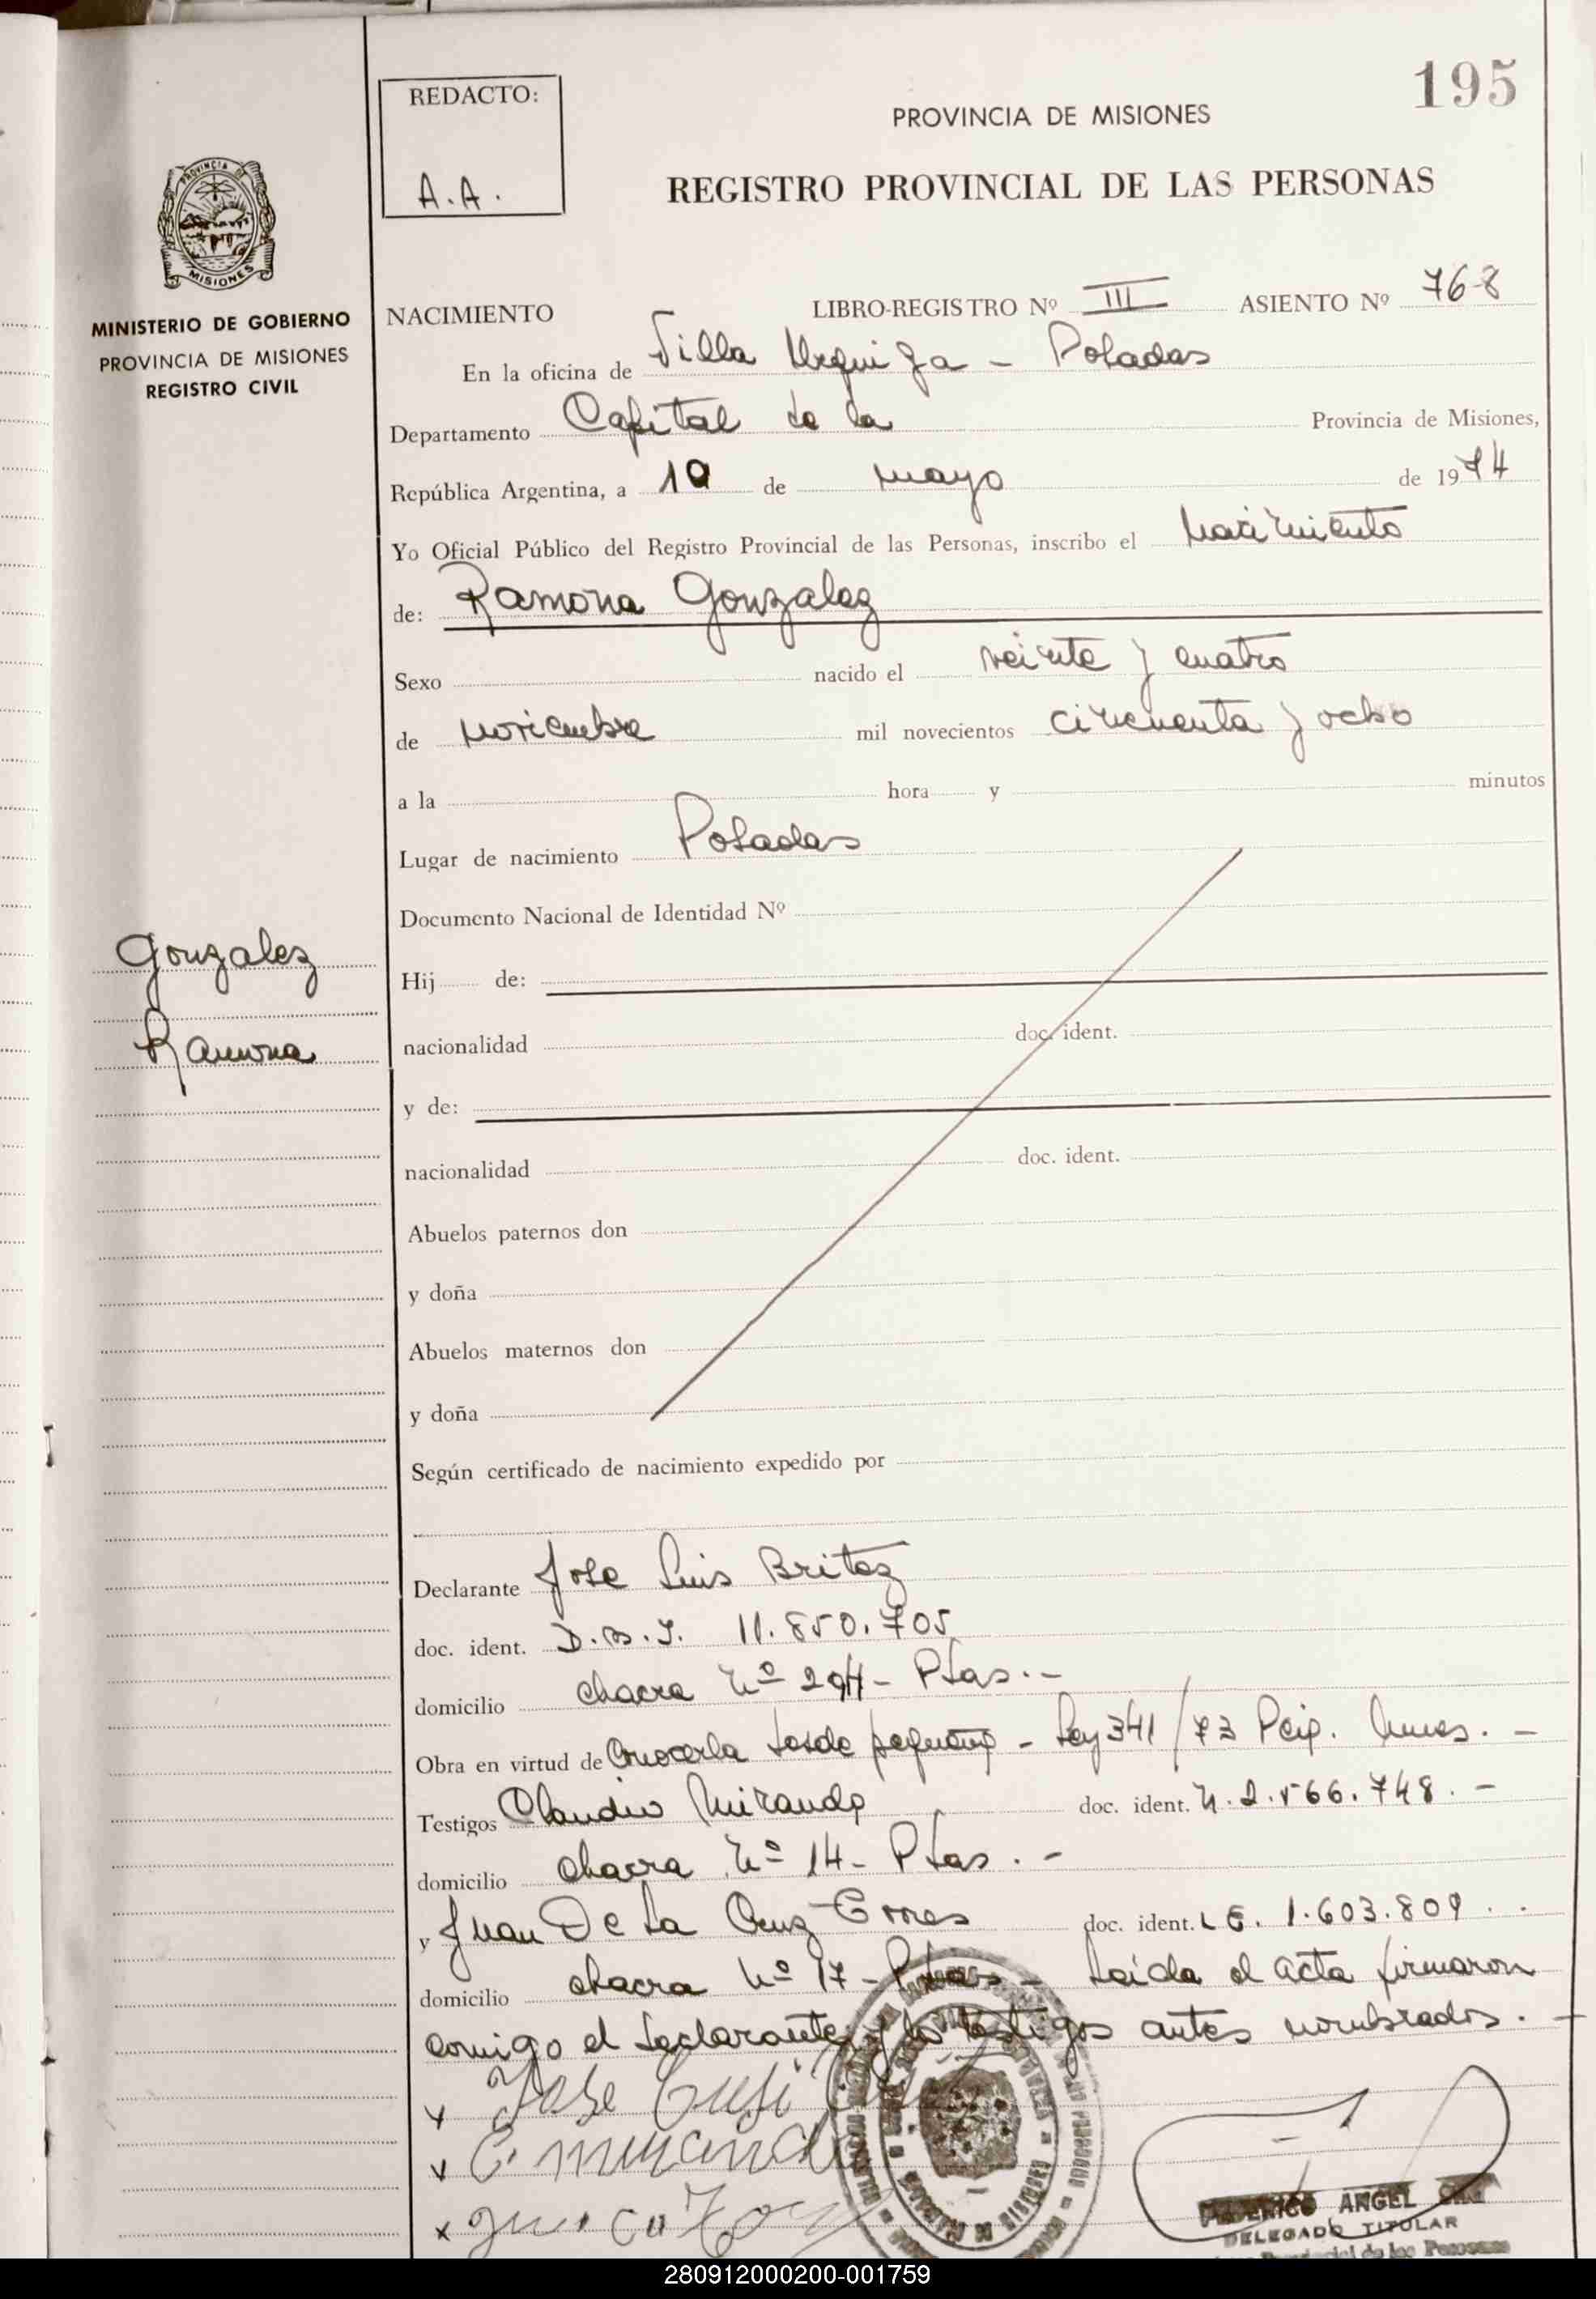 195
REDACTO:
A.A.
PROVINCIA DE MISIONES
REGISTRO PROVINCIAL DE LAS PERSONAS
PROVINCIA DE
MISIONES
MINISTERIO DE GOBIERNO
PROVINCIA DE MISIONES
REGISTRO CIVIL
NACIMIENTO LIBRO-REGISTRO Nº III ASIENTO Nº 768
En la oficina de Villa Urquiza - Posadas
Departamento Capital de la Provincia de Misiones,
República Argentina, a 10 de mayo de 1974
Yo Oficial Público del Registro Provincial de las Personas, inscribo el Nacimiento
de: Ramona Gonzalez
Sexo nacido el veinte y cuatro
de noviembre mil novecientos cincuenta y ocho
a la hora y minutos
Lugar de nacimiento Posadas
Documento Nacional de Identidad Nº
Gonzalez
Ramona
Hij de:
nacionalidad doc. ident.
y de:
nacionalidad doc. ident.
Abuelos paternos don
y doña
Abuelos maternos don
y doña
Según certificado de nacimiento expedido por
Declarante Jose Luis Britez
doc. ident. D.N.I. 11.850.705
domicilio chacra Nº 294- Pdas.-
Obra en virtud de Conocerla desde pequeña - Ley 341/73
Testigos Claudio Miranda doc. ident. 2.566.748.-
domicilio chacra Nº 14- Pdas.-
y Juan De La Cruz Torres doc. ident. L E. 1.603.809
domicilio chacra Nº 17- Pdas - Leida el acta firmaron
comigo el declarante y los testigos antes nombrados.-
x Jose Luis
x C. Miranda
x
ANGEL
DELEGADO TITULAR
Provincial de las Personas
280912000200-001759